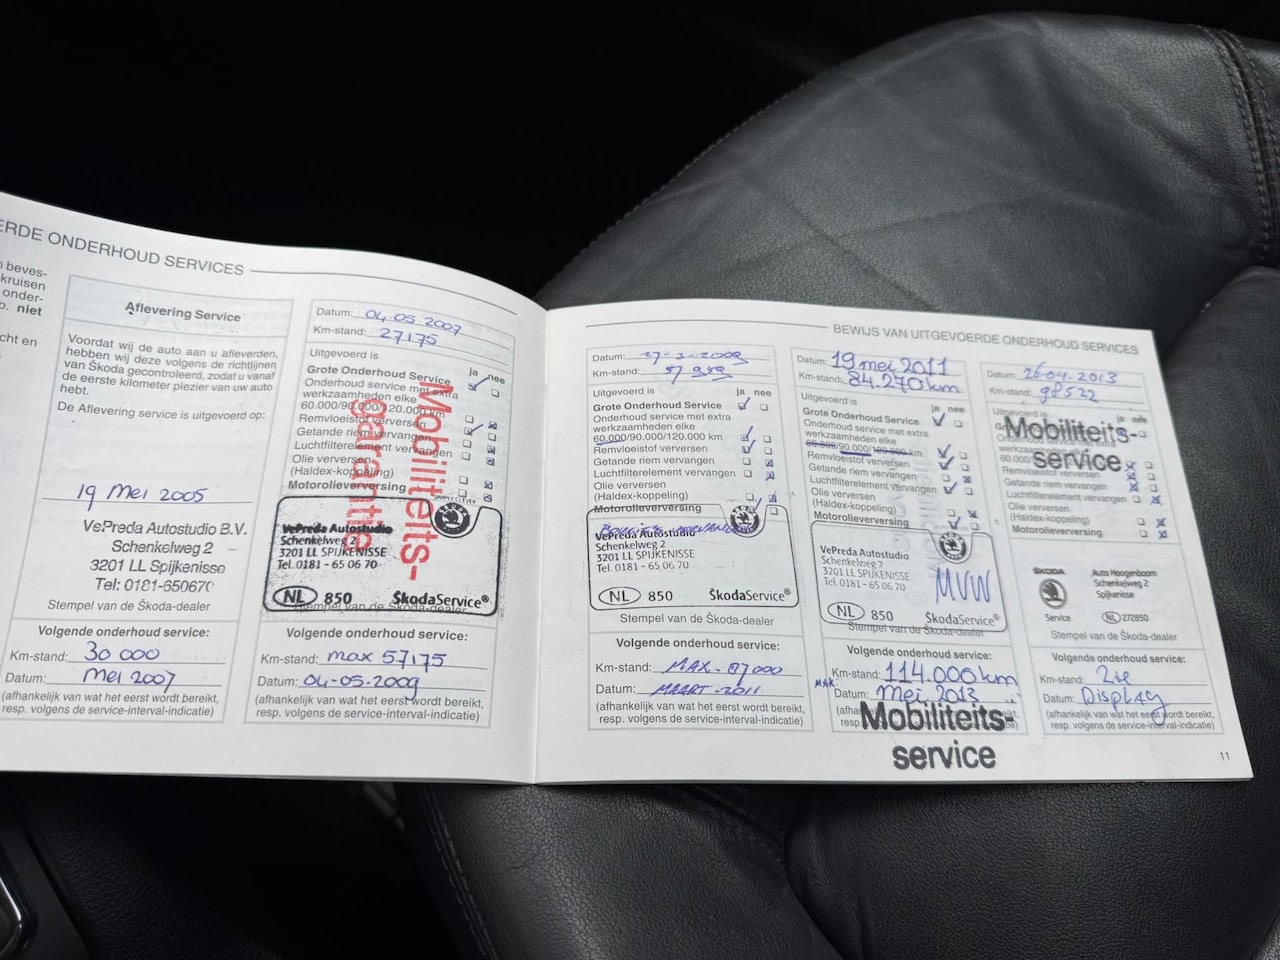 ERDE ONDERHOUD SERVICES
n beves-
kruisen
onder-
niet
cht en
Aflevering Service
Voordat wij de auto aan u afleverden,
hebben wij deze volgens de richtlijnen
van Škoda gecontroleerd, zodat u vanaf
de eerste kilometer plezier van uw auto
hebt.
De Aflevering service is uitgevoerd op:
19 Mei 2005
VePreda Autostudio B.V.
Schenkelweg 2
3201 LL Spijkenisse
Tel: 0181-650670
Stempel van de Škoda-dealer
Volgende onderhoud service:
Km-stand: 30 000
Datum: Mei 2007
(afhankelijk van wat het eerst wordt bereikt,
resp. volgens de service-interval-indicatie)
Datum: 04-05-2007
Km-stand: 27175
Uitgevoerd is
ja nee
Grote Onderhoud Service
Onderhoud service met extra
werkzaamheden elke
60.000/90.000/120.000 km
Remvloeistof verversen
Getande riem vervangen
Luchtfilterelement vervangen
Olie verversen
(Haldex-koppeling)
Motorolieverversing
Mobiliteits-
garantie
VePreda Autostudio
Schenkelweg 2
3201 LL SPIJKENISSE
Tel. 0181 - 65 06 70
NL 850 ŠkodaService®
Stempel van de Škoda-dealer
Volgende onderhoud service:
Km-stand: max 57175
Datum: 04-05-2009
(afhankelijk van wat het eerst wordt bereikt,
resp. volgens de service-interval-indicatie)
BEWIJS VAN UITGEVOERDE ONDERHOUD SERVICES
Datum: 27-3-2009
Km-stand:
Uitgevoerd is
ja nee
Grote Onderhoud Service
Onderhoud service met extra
werkzaamheden elke
60.000/90.000/120.000 km
Remvloeistof verversen
Getande riem vervangen
Luchtfilterelement vervangen
Olie verversen
(Haldex-koppeling)
Motorolieverversing
VePreda Autostudio
Schenkelweg 2
3201 LL SPIJKENISSE
Tel. 0181 - 65 06 70
NL 850 ŠkodaService®
Stempel van de Škoda-dealer
Volgende onderhoud service:
Km-stand: MAX - 87000
Datum: MAART-2011
(afhankelijk van wat het eerst wordt bereikt,
resp. volgens de service-interval-indicatie)
Datum: 19 mei 2011
Km-stand: 84.270km
Uitgevoerd is
ja nee
Grote Onderhoud Service
Onderhoud service met extra
werkzaamheden elke
60.000/90.000/120.000 km
Remvloeistof verversen
Getande riem vervangen
Luchtfilterelement vervangen
Olie verversen
(Haldex-koppeling)
Motorolieverversing
VePreda Autostudio
Schenkelweg 2
3201 LL SPIJKENISSE
Tel. 0181 - 65 06 70
NL 850 ŠkodaService®
Stempel van de Škoda-dealer
Volgende onderhoud service:
Km-stand: 114.000km
MAX. Datum: Mei 2013
Mobiliteits-
service
Datum: 26-04-2013
Km-stand: 98522
Uitgevoerd is
ja nee
Mobiliteits-
service
Remvloeistof verversen
Getande riem vervangen
Luchtfilterelement vervangen
Olie verversen
(Haldex-koppeling)
Motorolieverversing
ŠKODA
Service
Auto Hoogenboom
Schenkelweg 2
Spijkenisse
NL 272850
Stempel van de Škoda-dealer
Volgende onderhoud service:
Km-stand: Zie
Datum: Display
(afhankelijk van wat het eerst wordt bereikt,
resp. volgens de service-interval-indicatie)
11